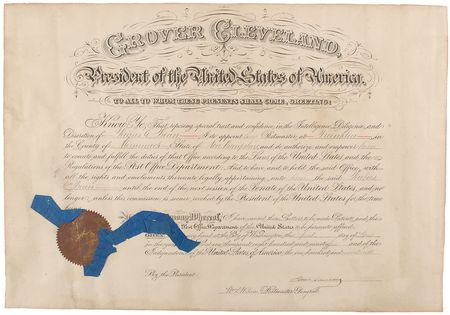 GROVER CLEVELAND,
President of the United States of America.
TO ALL TO WHOM THESE PRESENTS SHALL COME, GREETING:
Know Ye, That, reposing special trust and confidence in the Intelligence, Diligence, and
Discretion of I do appoint Postmaster, at in
the County of State of New Hampshire and do authorize and empower
to execute and fulfill the duties of that Office according to the Laws of the United States and the
Regulations of the Post Office Department: And to have and to hold the said Office, with
all the rights and emoluments thereunto legally appertaining, unto the said
until the end of the next session of the Senate of the United States, and no
longer; unless this commission is sooner revoked by the President of the United States for the time
being.
In Testimony Whereof, I have caused these Letters to be made Patent, and the
of the Post Office Department of the United States to be hereunto affixed.
day of
in the year one thousand eight hundred and ninety and of the
Independence of the United States of America, the one hundred and
By the President:
Postmaster General.